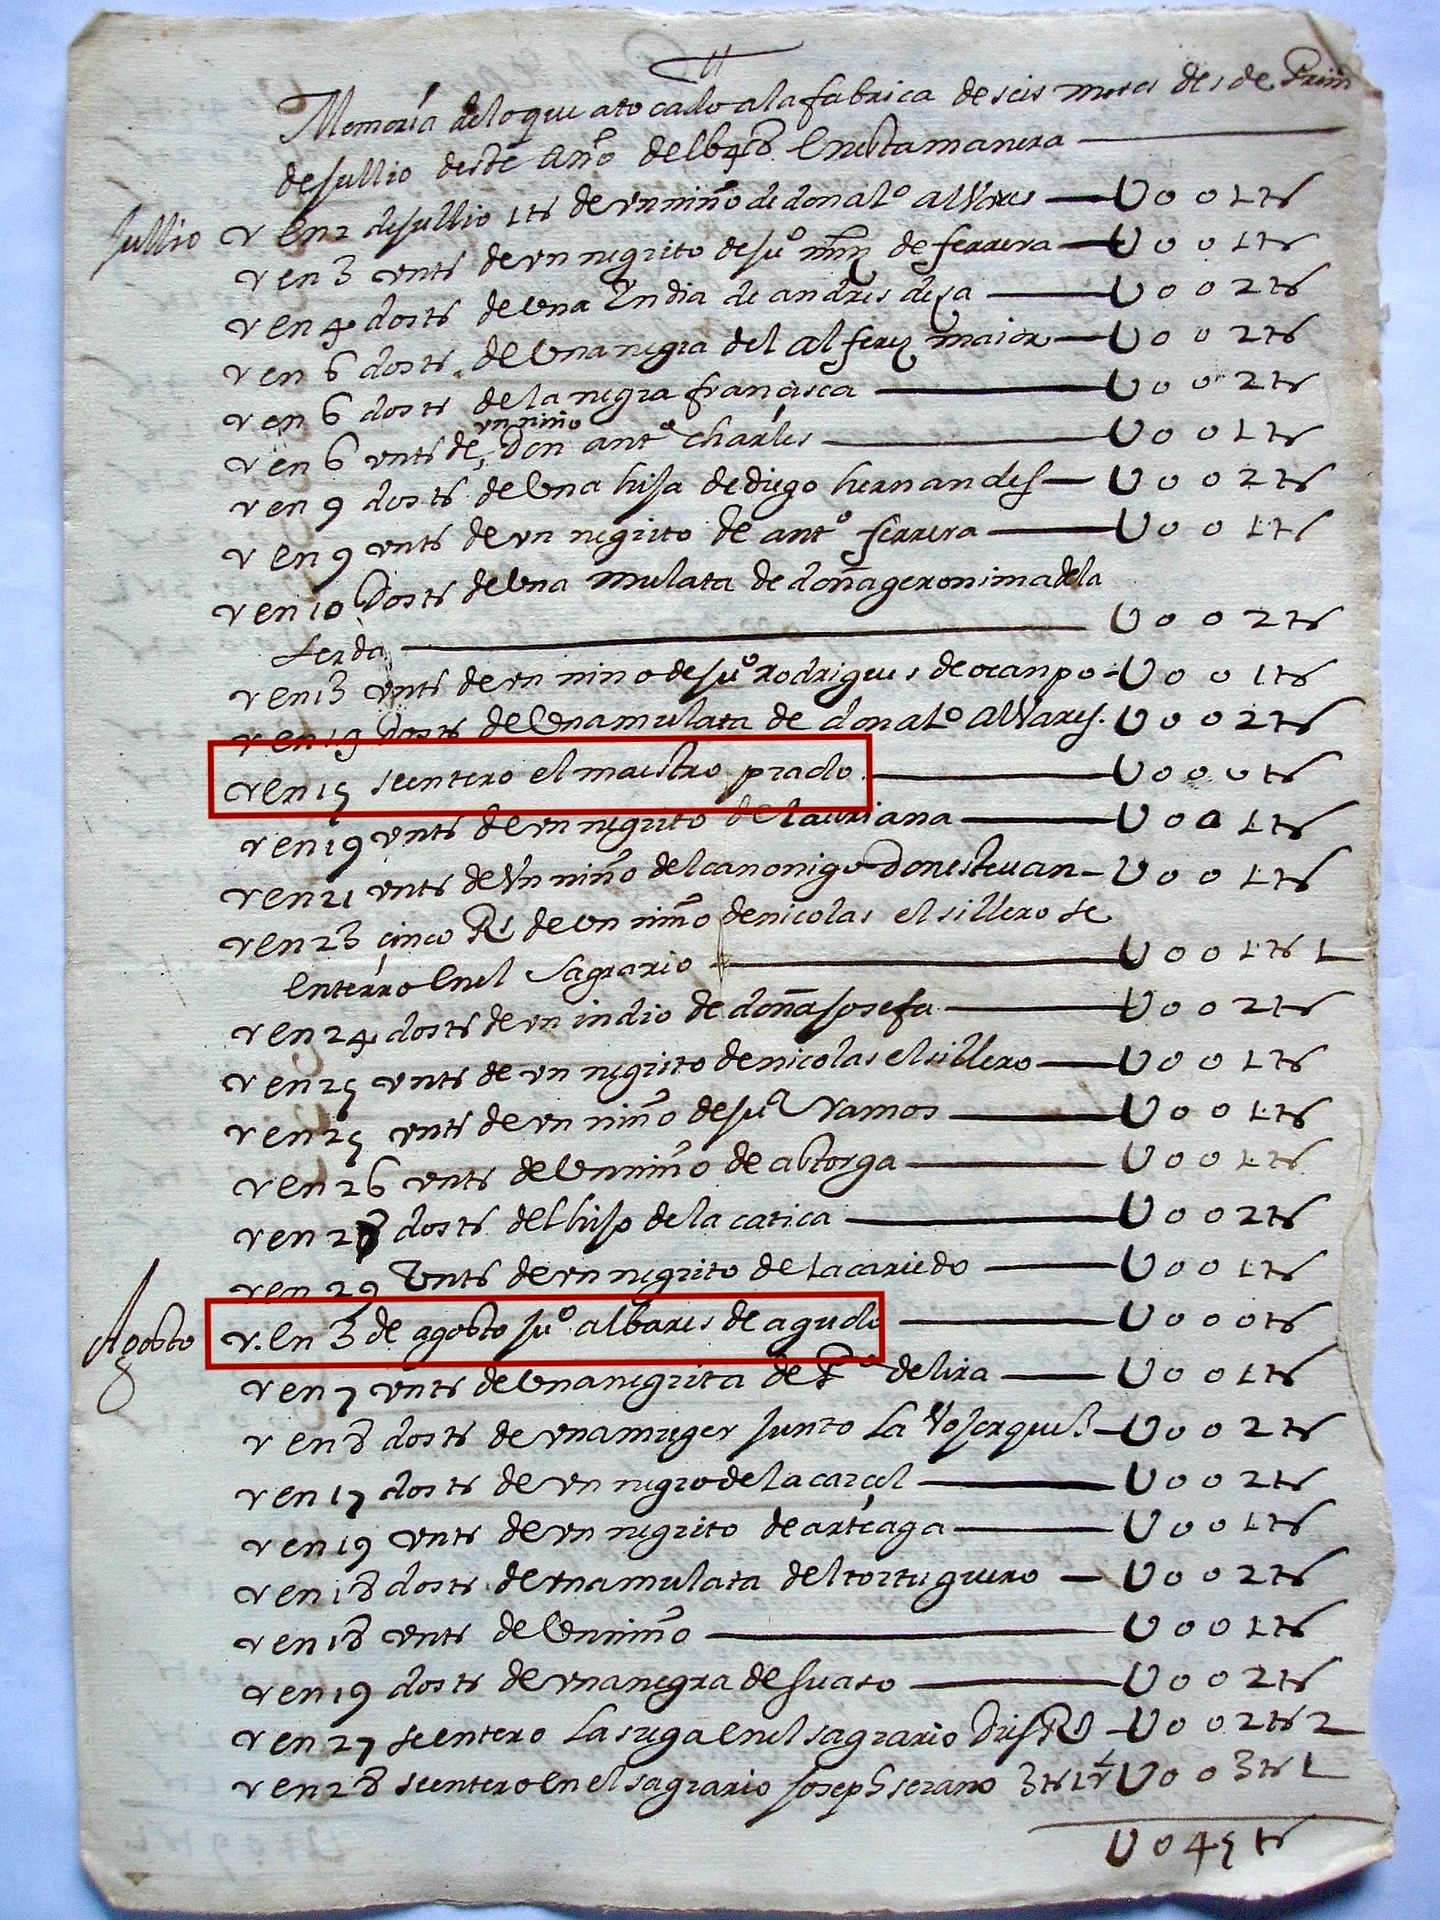 Memoria de lo que a tocado a la fabrica de seis meses desde Prim
de Jullio deste Año de 1648 En esta manera
Jullio
v en 2 de Jullio 1 ts de vn niño de don al.º alVares U001ts
v en 3 vn ts de vn negrito de Ju.º de ferrera U001ts
v en 4 dos ts de Una Yndia de andres desa U002ts
v en 6 dos ts de Una negra del alferez maior U002ts
v en 6 dos ts de la negra francisca U002ts
v en 6 vn ts de vn niño Don ant.º charles U001ts
v en 9 dos ts de Una hija de diego hernandes U002ts
v en 9 vn ts de vn negrito de ant.º ferrera U001ts
v en 10 Dos ts de Una mulata de doña geronima de la
Serda U002ts
v en 13 vn ts de vn nino de Ju.º rodrigues de ocanpo U001ts
v en 13 Dos ts de Una mulata de don al.º alVares U002ts
v en 15 se entero el maestro prado U000ts
v en 19 vn ts de vn negrito de U001ts
v en 21 vn ts de Vn niño del canonigo Don esteuan U001ts
v en 23 cinco Rs de Un niño de nicolas el sillero se
enterro en el Sagrario U001ts1
v en 24 dos ts de vn indio de doña Josefa U002ts
v en 25 vn ts de vn negrito de nicolas el sillero U001ts
v en 25 vn ts de vn niño de Ju.º Ramos U001ts
v en 26 vn ts de Un niño de astorga U001ts
v en 28 dos ts del hijo de la catica U002ts
v en 29 Vn ts de vn negrito de U001ts
Agosto
v. en 3 de agosto Ju.º albares de agudo U000ts
v en 7 vn ts de Una negrita de de lira U001ts
v en 8 dos ts de vna muger junto la U002ts
v en 17 dos ts de vn negro de la carcel U002ts
v en 19 vn ts de vn negrito de arteaga U001ts
v en 18 dos ts de vna mulata del tortuguero U002ts
v en 18 vn ts de Un niño U001ts
v en 19 dos ts de vna negra de suaso U002ts
v en 27 se entero en el sagrario U002ts2
v en 28 se entero en el sagrario Joseph serano 3ts1r U003ts1
U045ts